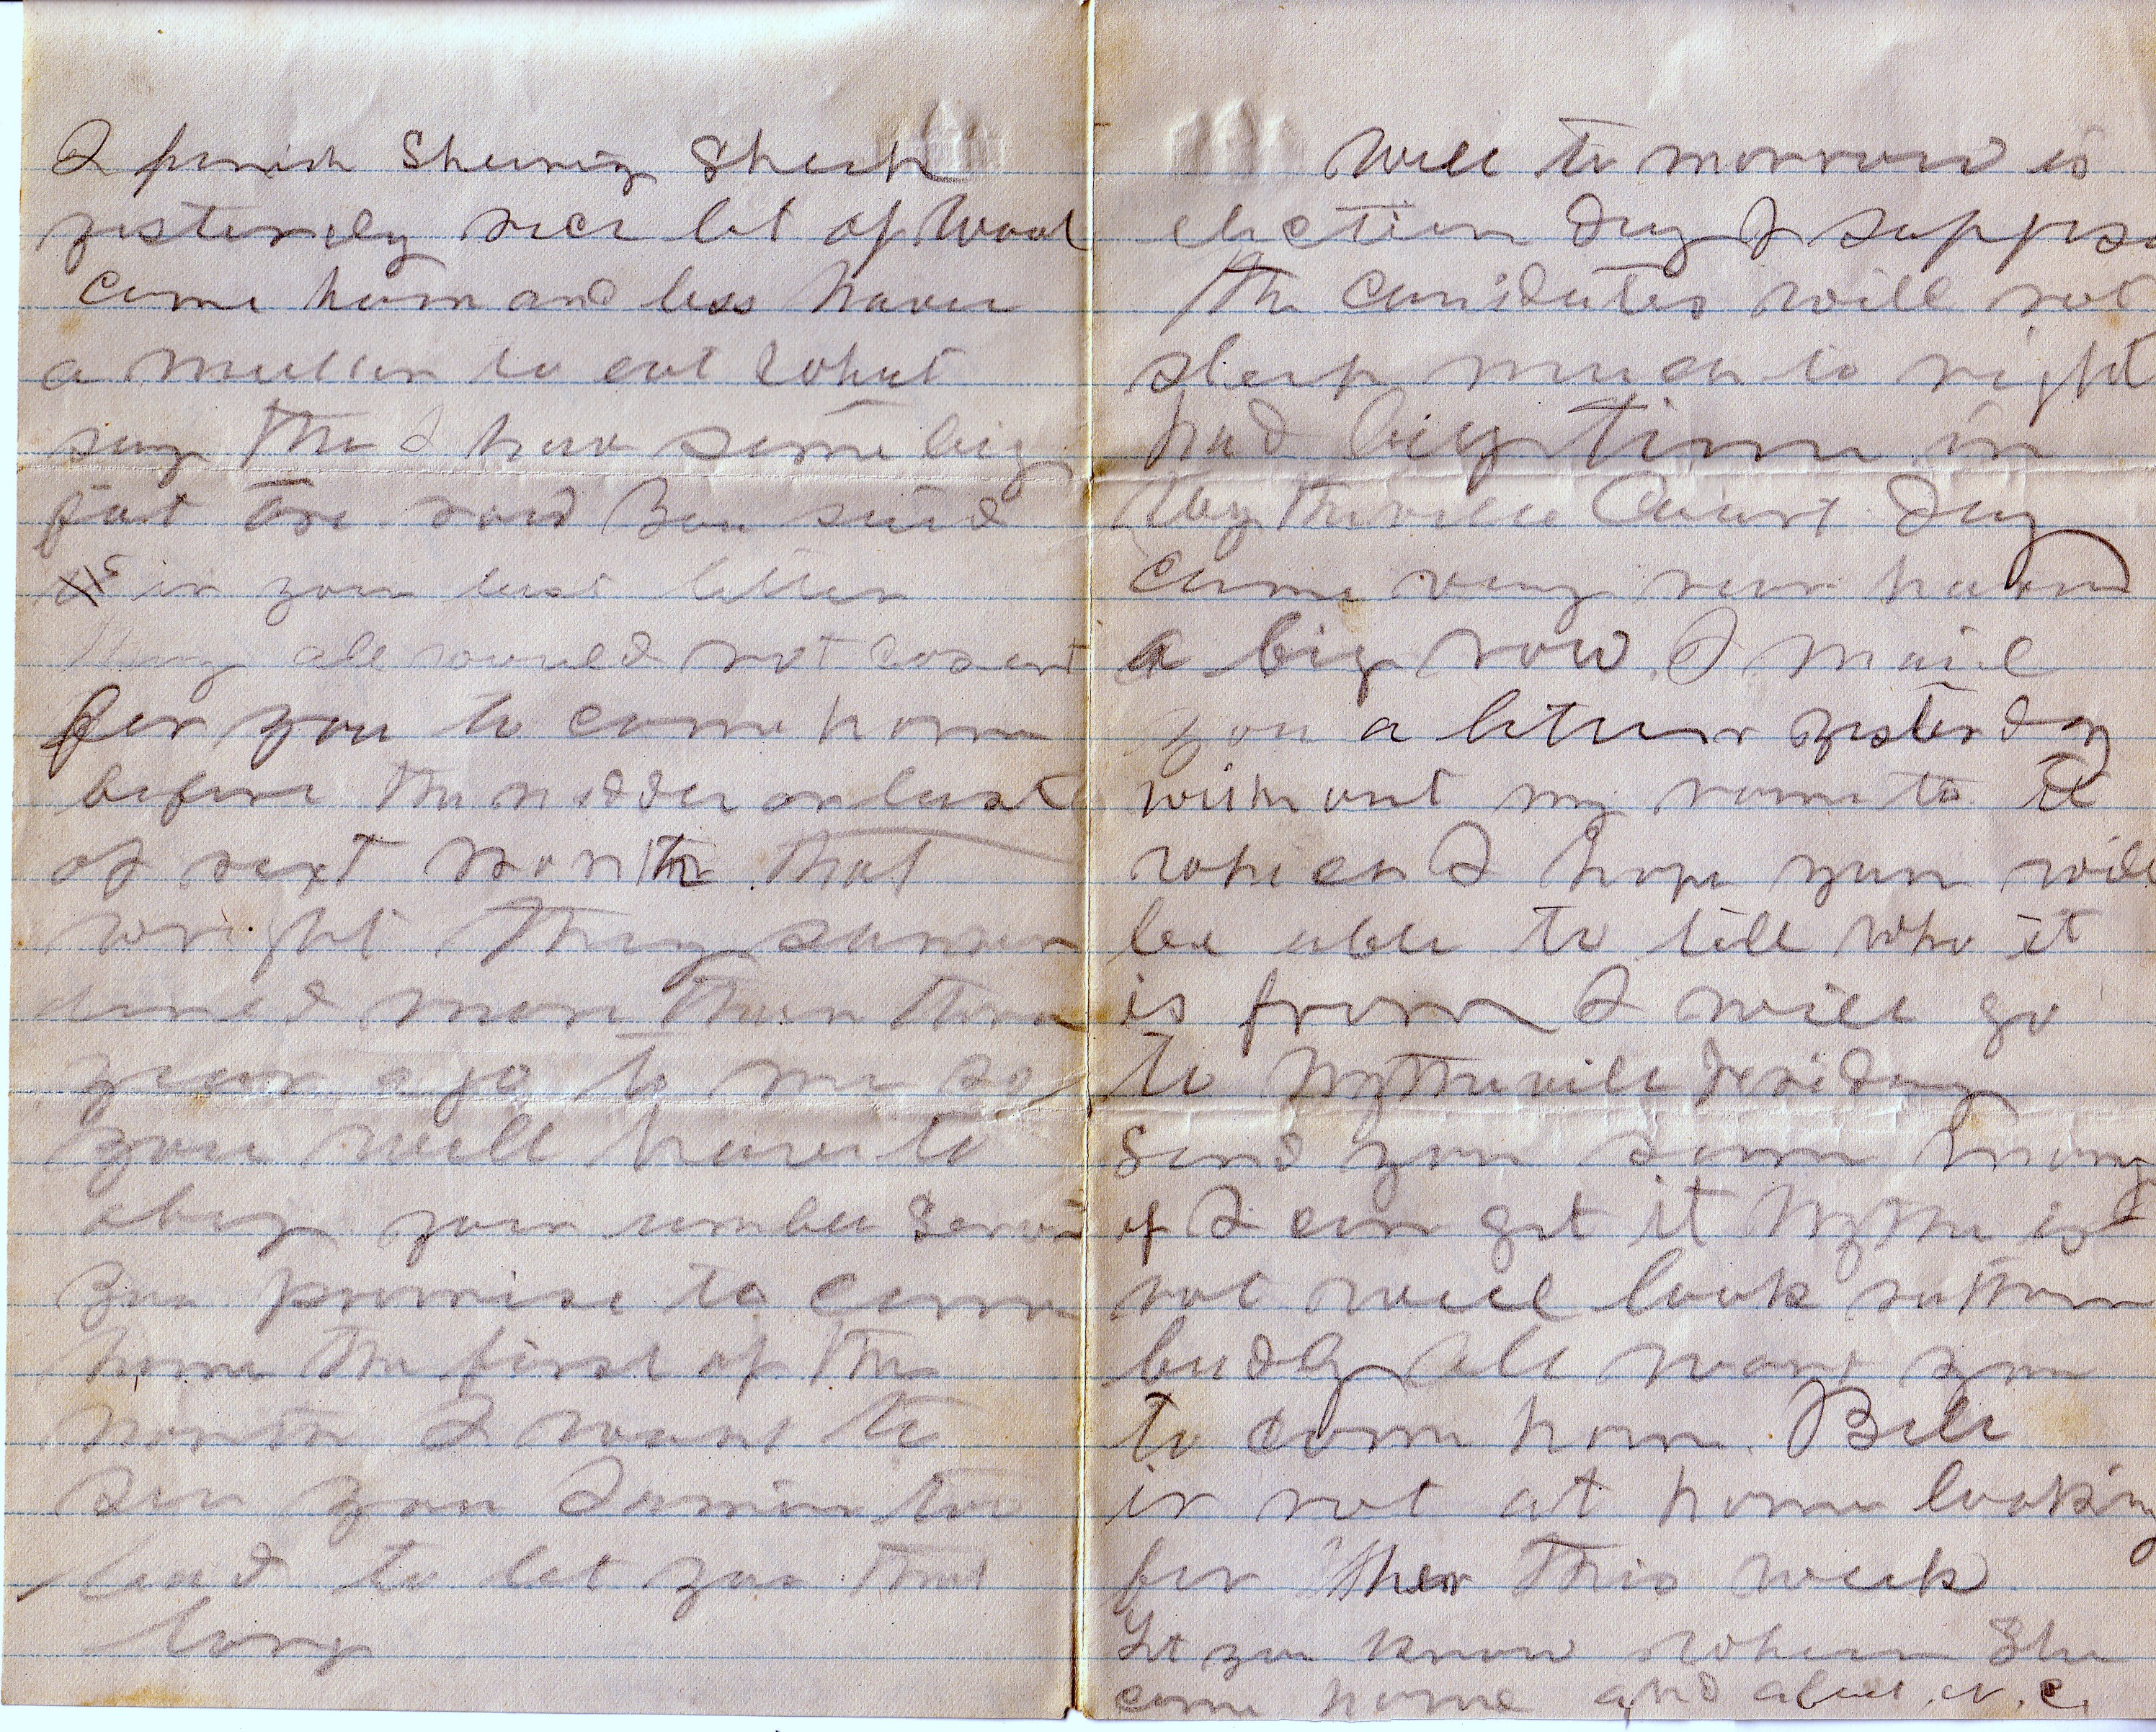 I finish Shering Sheep
yesterdy nice lot of Wool
Come hom and less have
a mutton to eat what
say the I have some big
fat one now You said
in your last letter
They all would not consent
for you to come home
before the midder or last
of next month that
wright They surren
dered more than three
year ago to me so
you will have to
obey your umble Serv
You promise to come
home the first of the
month I want to
see you
bad to let you that
long
Well to morrow is
election day I suppose
the canidates will not
sleep much to night
had big time in
Wytheville Court Day
came very near havin
a big row. I mail
you a letter yesterday
without my name to it
which I hope you will
be able to tell who it
is from I will go
to Wytheville friday
Send you some money
if I can get it Wythe is
not well look rather
badly All want you
to come home. Bill
is not at home looking
for her this week
Let you know when She
come home and